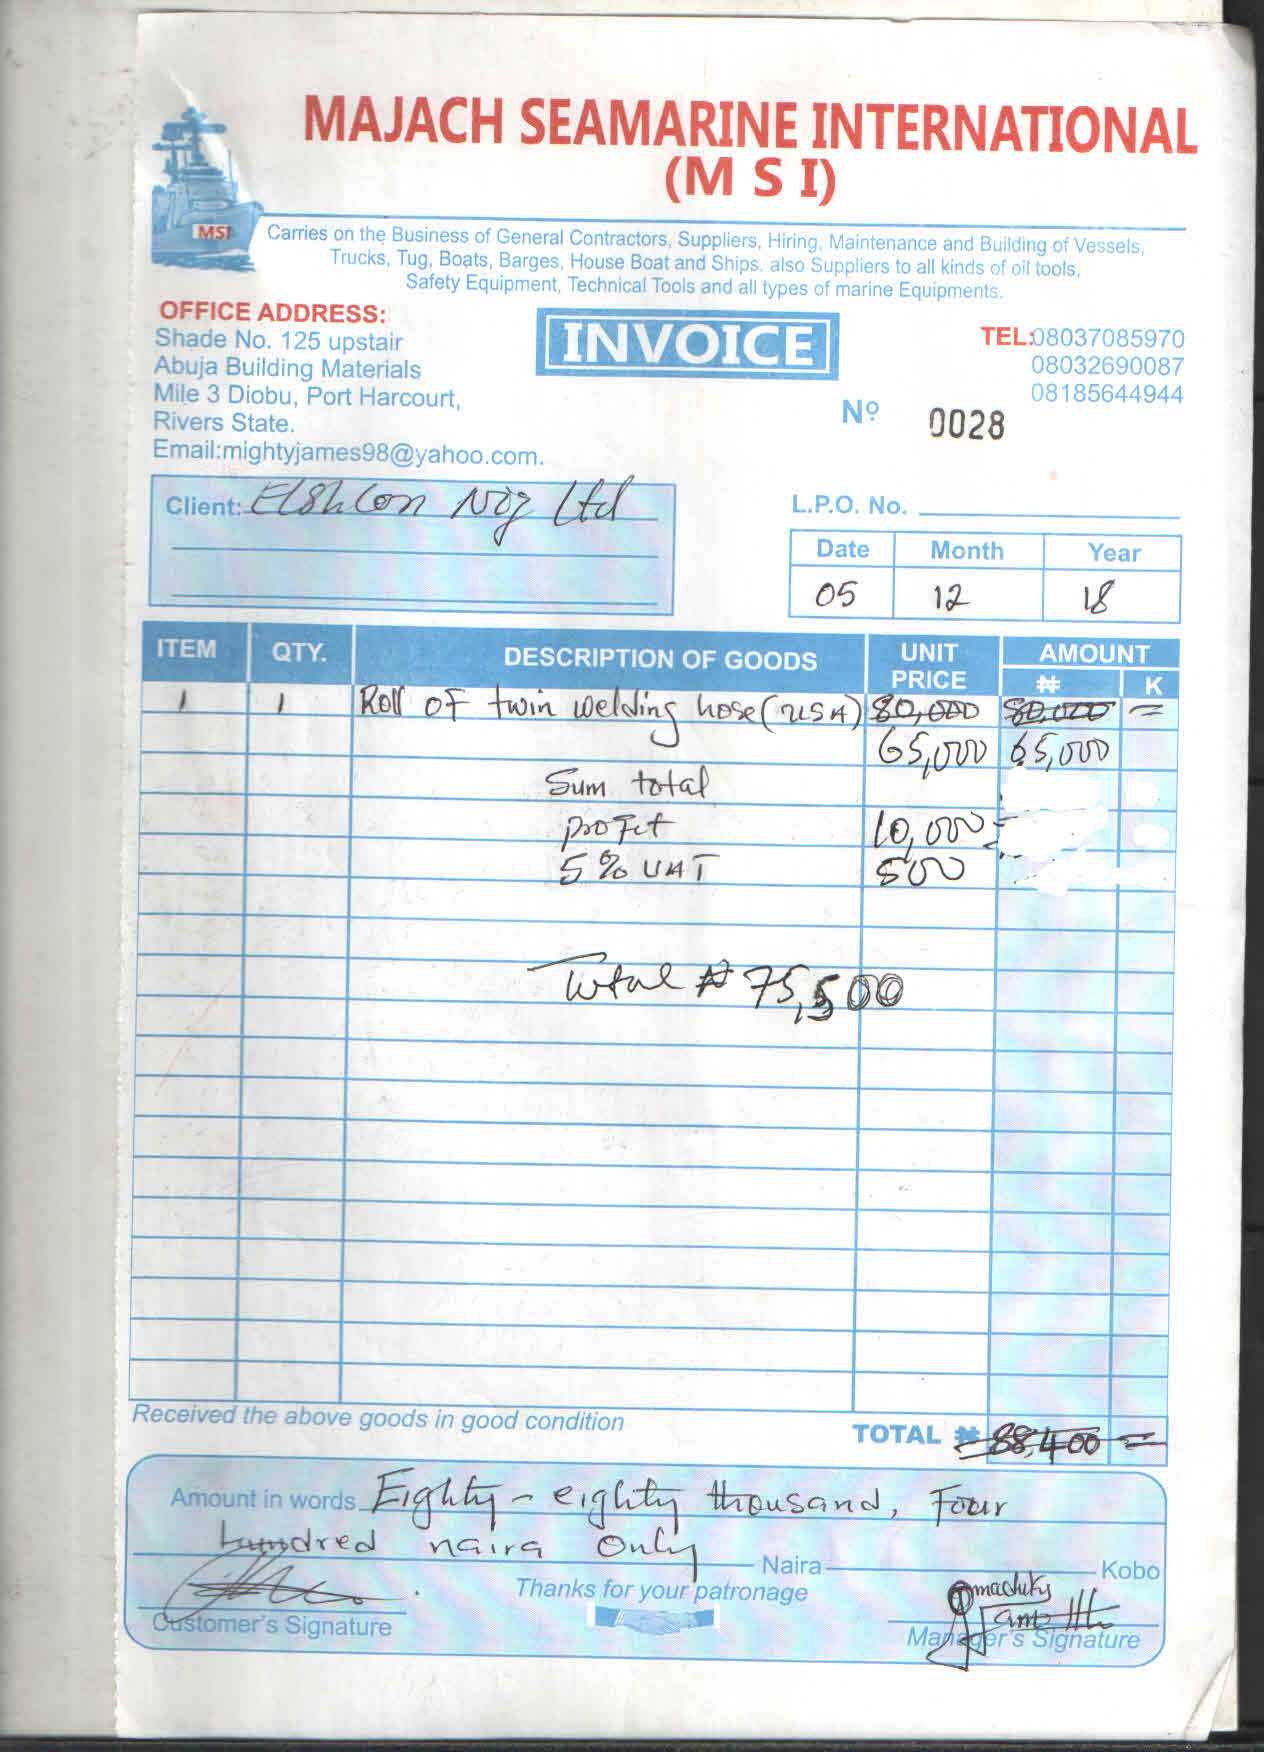 MAJACH SEAMARINE INTERNATIONAL
(M S I)
MSI
Carries on the Business of General Contractors, Suppliers, Hiring, Maintenance and Building of Vessels,
Trucks, Tug, Boats, Barges, House Boat and Ships. also Suppliers to all kinds of oil tools,
Safety Equipment, Technical Tools and all types of marine Equipments.
OFFICE ADDRESS:
Shade No. 125 upstair
Abuja Building Materials
Mile 3 Diobu, Port Harcourt,
Rivers State.
Email:mightyjames98@yahoo.com.
INVOICE
TEL:08037085970
08032690087
08185644944
Nº 0028
Client: Elshcon Nig Ltd
L.P.O. No.
Date Month Year
05 12 18
ITEM QTY. DESCRIPTION OF GOODS UNIT PRICE AMOUNT
₦ K
1 1 Roll of twin welding hose (USA) 80,000 80,000 =
65,000 65,000
Sum total
profit 10,000
5% VAT 500
Total ₦ 75,500
Received the above goods in good condition
TOTAL ₦ 88,400 =
Amount in words Eighty - eighty thousand, Four
hundred naira Only Naira Kobo
Thanks for your patronage
Customer's Signature
Manager's Signature